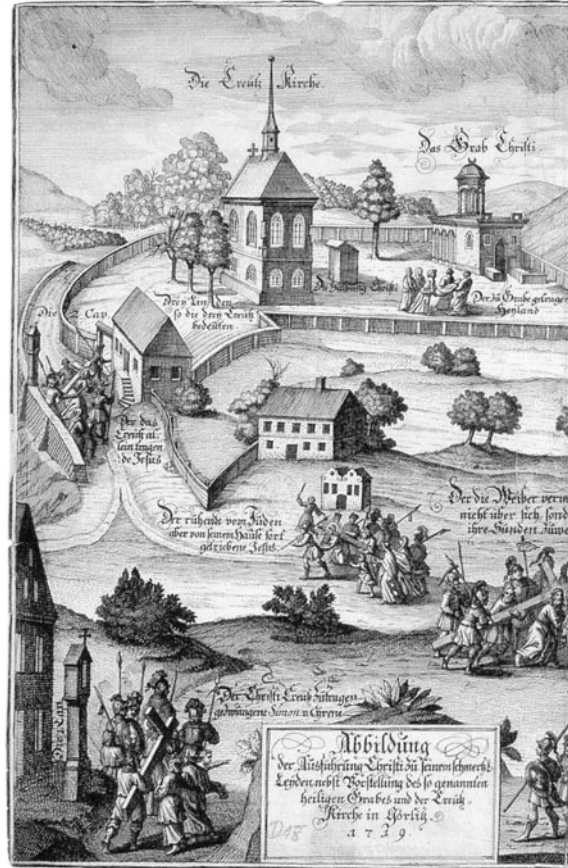 Die Creutz Kirche.
Das Grab Christi.
Die Salbung Christi
Der zu Grabe getragene
Heyland
Drey Linden
so die drey Creutz
bedeuten.
Die 2 Cap
Der das
Creutz al-
lein tragen
de Jesus
Der ruhende vom Juden
aber von seinem Hause fort
getriebene Jesus.
Der die Weiber verm
nicht über sich, sond
ihre Sünden
Der Christi Creutz zutragen
gezwungene Simon v. Cyrene
Die 1 Cap
Abbildung
der Ausführung Christi zu seinem schmertz
Leyden nebst Vorstellung des so genannten
heiligen Grabes und der Creutz-
Kirche in Görlitz.
1719.
D18